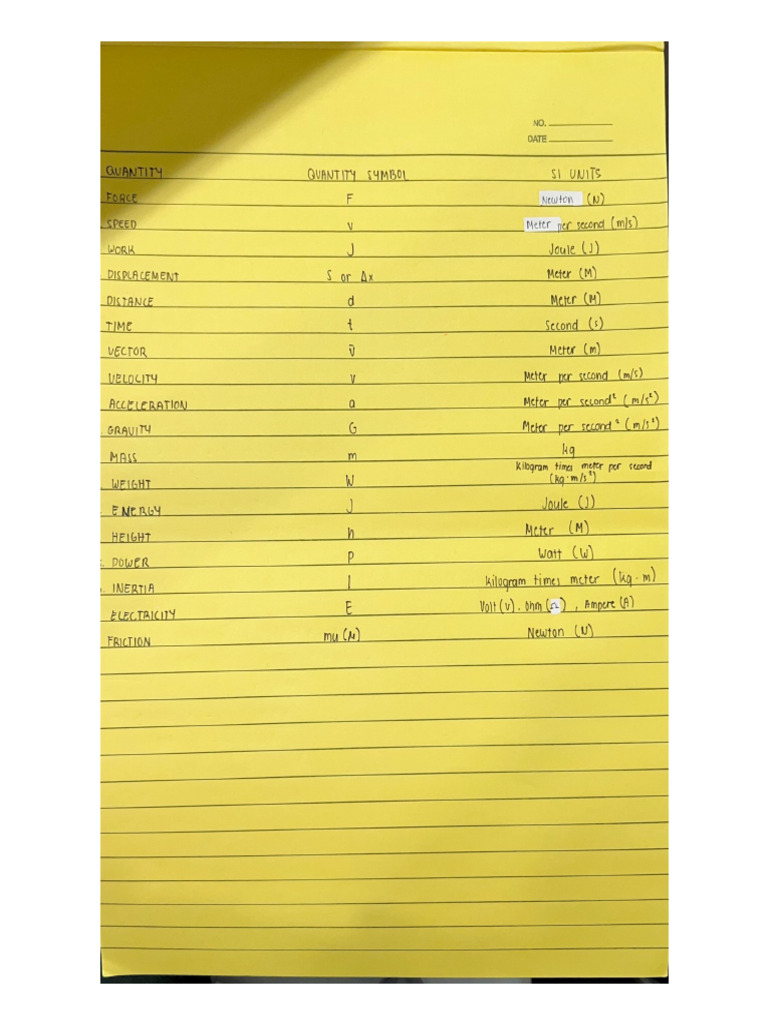 NO.
DATE
QUANTITY QUANTITY SYMBOL SI UNITS
FORCE F Newton (N)
SPEED v Meter per second (m/s)
WORK J Joule (J)
DISPLACEMENT S or Δx Meter (M)
DISTANCE d Meter (M)
TIME t Second (s)
VECTOR v̄ Meter (m)
VELOCITY v Meter per second (m/s)
ACCELERATION a Meter per second² (m/s²)
GRAVITY G Meter per second² (m/s²)
MASS m kg
WEIGHT W Kilogram times meter per second (kg·m/s²)
ENERGY J Joule (J)
HEIGHT h Meter (M)
POWER P Watt (W)
INERTIA I kilogram times meter (kg·m)
ELECTRICITY E Volt (v). Ohm (Ω), Ampere (A)
FRICTION mu (μ) Newton (N)